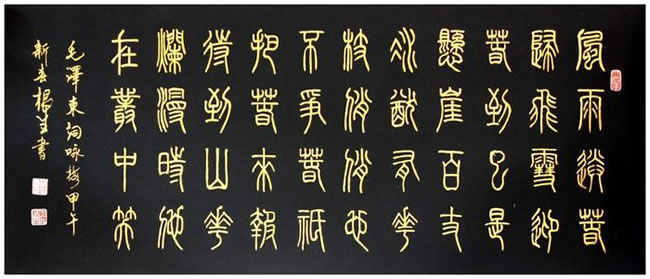 風雨送春
歸飛雪迎
春到已是
懸崖百丈
冰猶有花
枝俏俏也
不爭春祇
把春來報
待到山花
爛漫時她
在叢中笑
毛澤東詞咏梅甲午
新春楊書